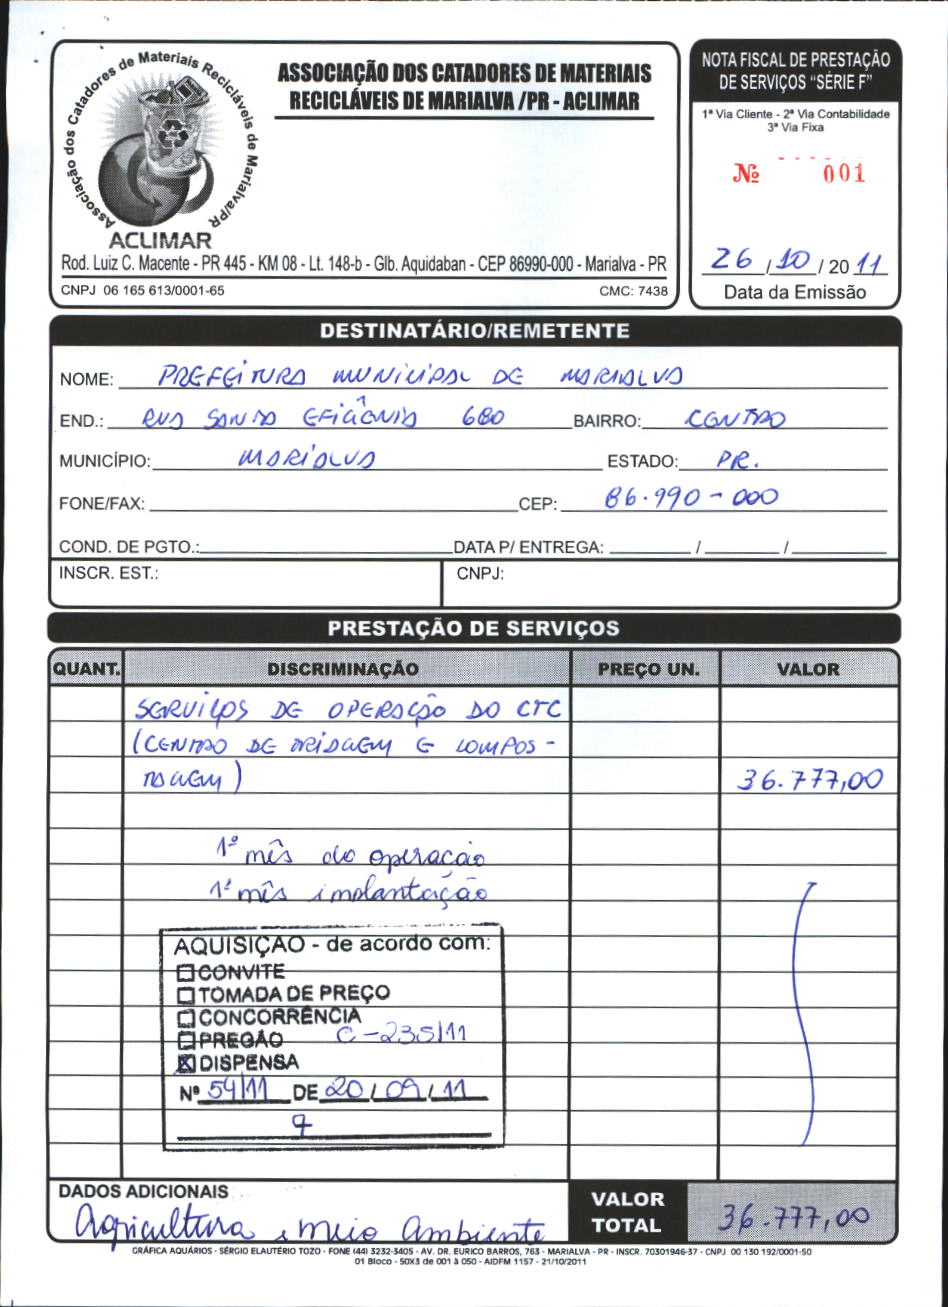 Associação dos Catadores de Materiais Recicláveis de Marialva/PR
ACLIMAR
ASSOCIAÇÃO DOS CATADORES DE MATERIAIS
RECICLÁVEIS DE MARIALVA /PR - ACLIMAR
Rod. Luiz C. Macente - PR 445 - KM 08 - Lt. 148-b - Glb. Aquidaban - CEP 86990-000 - Marialva - PR
CNPJ 06 165 613/0001-65 CMC: 7438
NOTA FISCAL DE PRESTAÇÃO
DE SERVIÇOS "SÉRIE F"
1ª Via Cliente - 2ª Via Contabilidade
3ª Via Fixa
Nº 001
26 / 10 / 20 11
Data da Emissão
DESTINATÁRIO/REMETENTE
NOME: PREFEITURA MUNICIPAL DE MARIALVA
END.: RUA SANTA EFIGÊNIA 680 BAIRRO: CENTRO
MUNICÍPIO: MARIALVA ESTADO: PR.
FONE/FAX: CEP: 86.990-000
COND. DE PGTO.: DATA P/ ENTREGA: / /
INSCR. EST.: CNPJ:
PRESTAÇÃO DE SERVIÇOS
QUANT. DISCRIMINAÇÃO PREÇO UN. VALOR
SERVIÇOS DE OPERAÇÃO DO CTC
(CENTRO DE TRIAGEM E COMPOS-
TAGEM) 36.777,00
1º mês de operação
1º mês implantação
AQUISIÇÃO - de acordo com:
CONVITE
TOMADA DE PREÇO
CONCORRÊNCIA
PREGÃO C-235/11
DISPENSA
Nº 54/11 DE 20/09/11
DADOS ADICIONAIS
Agricultura e Meio Ambiente
VALOR
TOTAL 36.777,00
GRÁFICA AQUÁRIOS - SÉRGIO ELAUTÉRIO TOZO - FONE (44) 3232-3405 - AV. DR. EURICO BARROS, 763 - MARIALVA - PR - INSCR. 70301946-37 - CNPJ 00 130 192/0001-50
01 Bloco - 50X3 de 001 à 050 - AIDFM 1157 - 21/10/2011